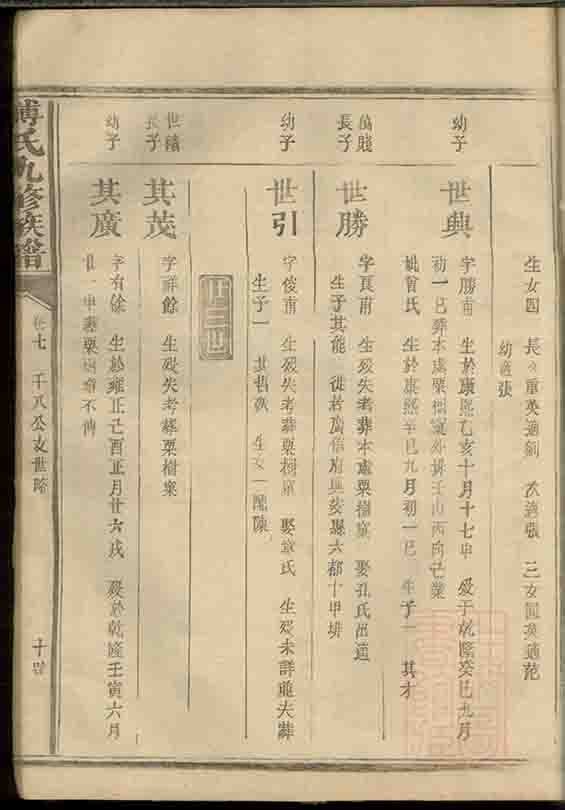 生女四 長女重英適劉 次適張 三女閏英適范
幼適張
幼子
世典
字勝甫 生於康熙乙亥十月十七申 歿于乾隆癸巳九月
初一巳葬本處栗樹窠外排壬山丙向己業
妣曾氏 生於康熙辛巳九月初一巳 生子一 其才
萬賤
長子
世勝
字員甫 生歿失考葬本處栗樹窠 娶孔氏出適
生子其能 從若廣信府興安縣六都十甲排
幼子
世引
字俊甫 生歿失考葬栗樹窠 娶章氏 生歿未詳祔夫葬
生子一 其 生女一配陳
廿三世
世禧
長子
其茂
字祥餘 生歿失考葬栗樹窠
幼子
其廣
字有餘 生於雍正己酉正月廿六戌 歿於乾隆壬寅六月
廿一申葬栗樹窠不傳
傅氏九修族譜
卷七 千八公支世略 十四